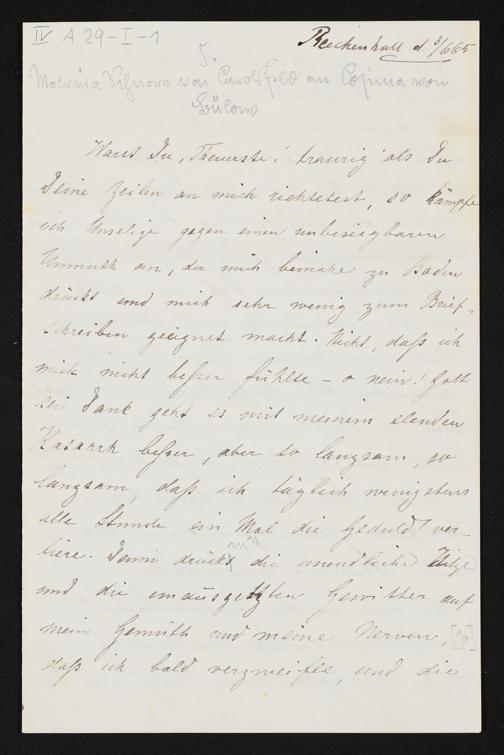 IV A 29-I-1
Reichenhall d. 3/6 65
5.
Malwina Schnorr von Carolsfeld an Cosima von
Bülow
Warst Du, Theuerste! traurig als Du
Deine Zeilen an mich richtetest, so kämpfe
ich Unselige gegen einen unbesiegbaren
Unmuth an, der mich beinahe zu Boden
drückt und mich sehr wenig zum Brief-
schreiben geeignet macht. Nicht, daß ich
mich nicht beßer fühlte – o nein! Gott
sei Dank geht es mit meinem elenden
Katarrh beßer, aber so langsam, so
langsam, daß ich täglich wenigstens
alle Stunde ein Mal die Geduld ver-
liere. Dann drückt die unendliche Hitze
und die unausgesetzten Gewitter auf
mein Gemüth und meine Nerven,
daß ich bald verzweifle, und die